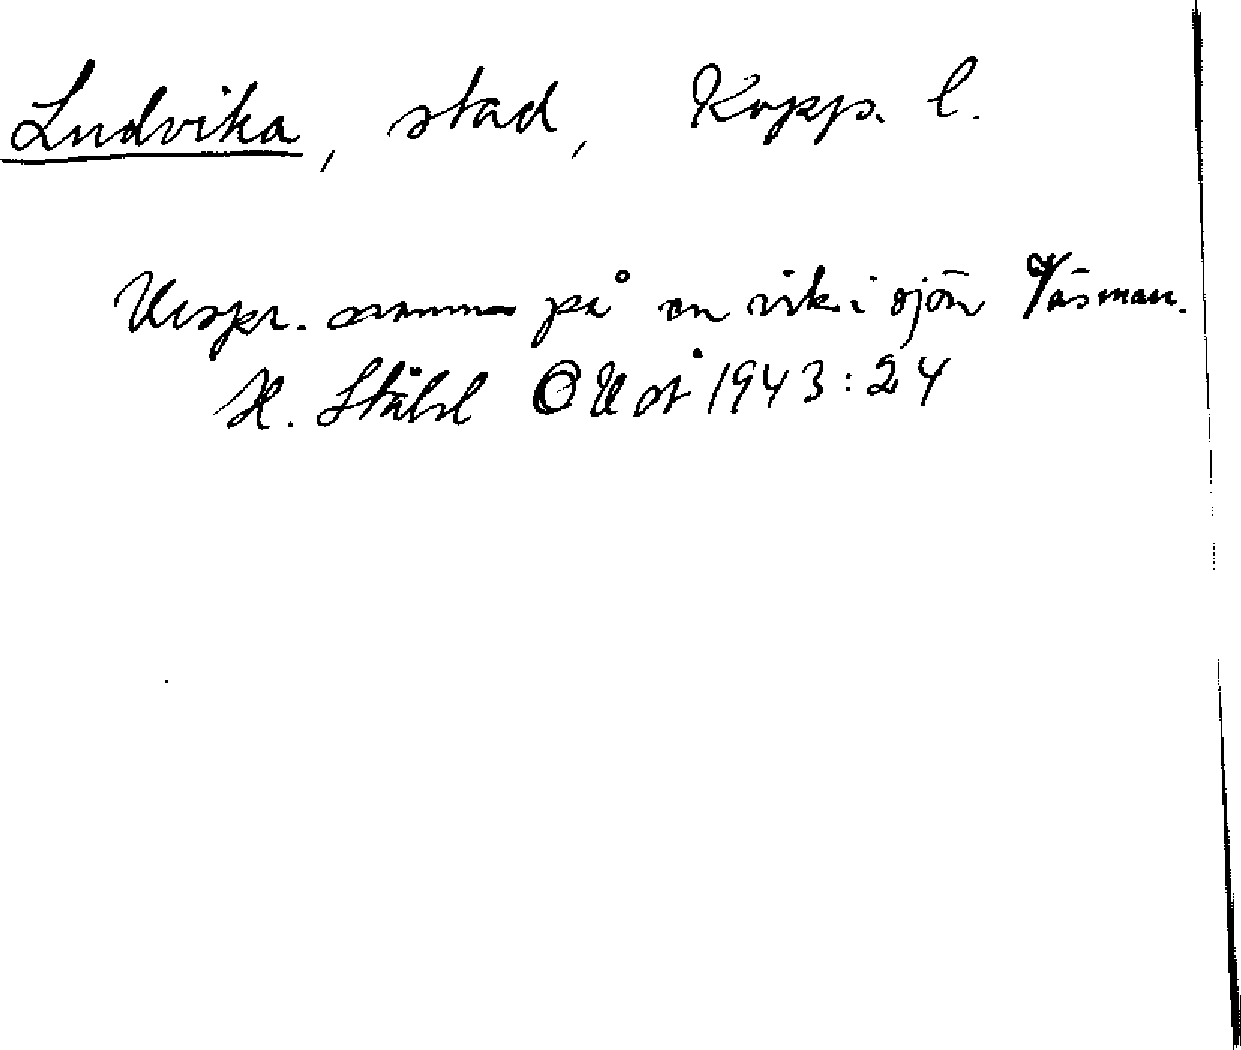 Ludvika, stad, Kopp. l.
Urspr. namn på en vik i sjön Väsman.
H. Ståhl OUoÅ 1943:24